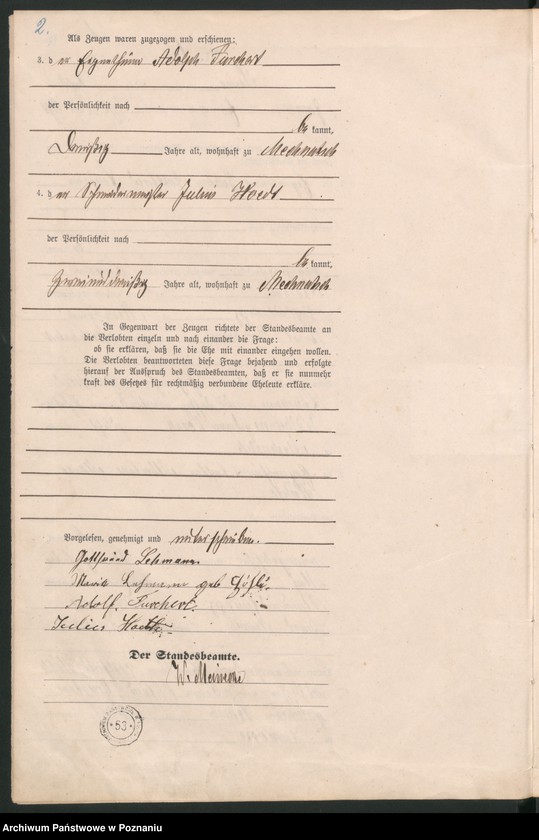 2.
Als Zeugen waren zugezogen und erschienen:
3. d er Eigenthümer Adolph Furchert
der Persönlichkeit nach
be kannt,
Dreißig Jahre alt, wohnhaft zu Mechnatsch
4. d er Schneidermeister Julius Hoedt
der Persönlichkeit nach
be kannt,
zweiunddreißig Jahre alt, wohnhaft zu Mechnatsch
In Gegenwart der Zeugen richtete der Standesbeamte an
die Verlobten einzeln und nach einander die Frage:
ob sie erklären, daß sie die Ehe mit einander eingehen wollen.
Die Verlobten beantworteten diese Frage bejahend und erfolgte
hierauf der Ausspruch des Standesbeamten, daß er sie nunmehr
kraft des Gesetzes für rechtmäßig verbundene Eheleute erkläre.
Vorgelesen, genehmigt und unterschrieben.
Gottfried Lehmann
Marie Lehmann geb
Adolf. Furchert.
Julius
Der Standesbeamte.
W. Meinecke
53
Archiwum Państwowe w Poznaniu